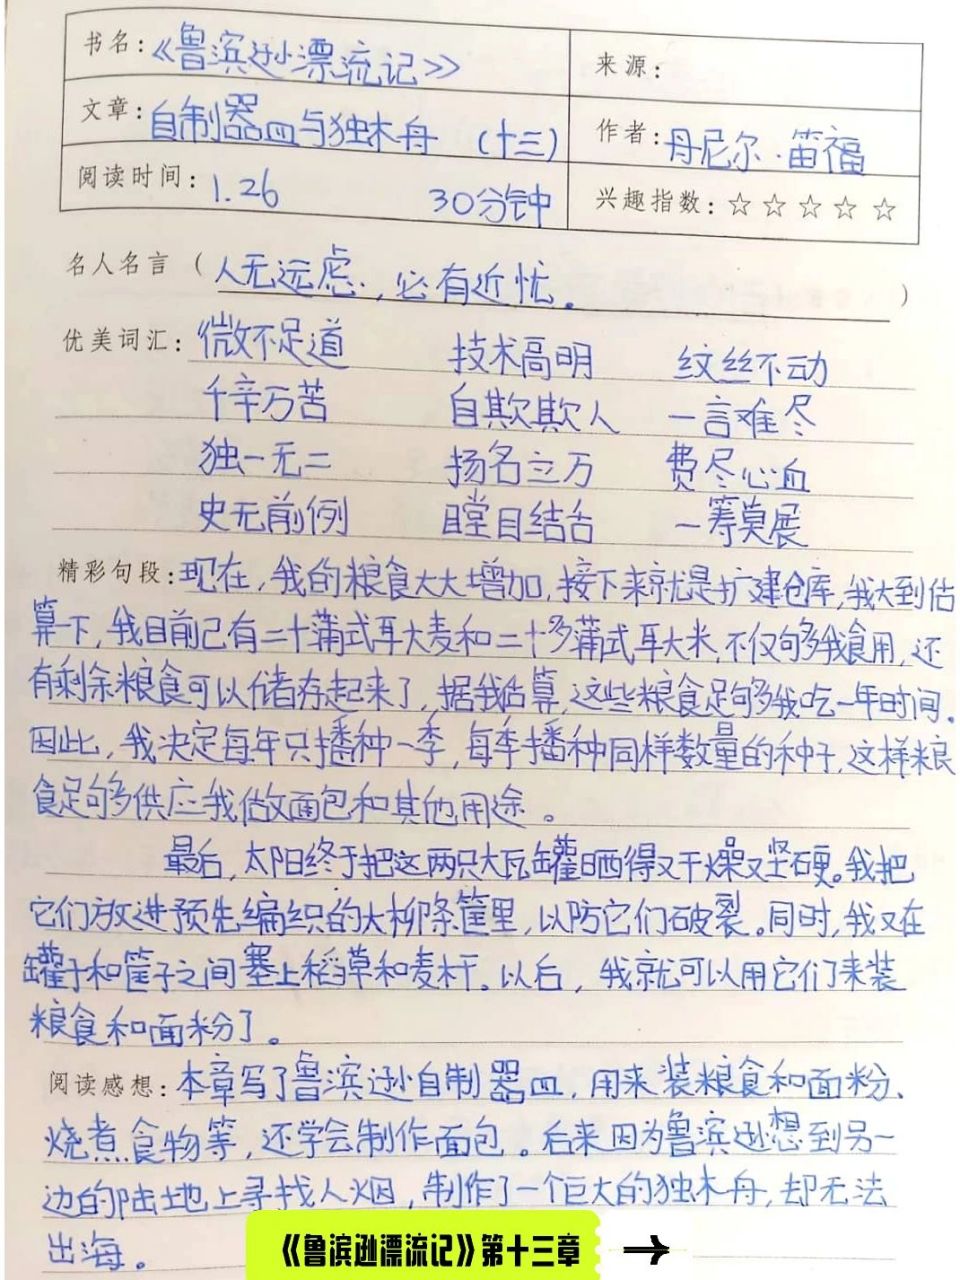 书名:《鲁滨逊漂流记》 来源:
文章:自制器皿与独木舟 (十三) 作者:丹尼尔·笛福
阅读时间:1.26 30分钟 兴趣指数:☆☆☆☆☆
名人名言(人无远虑,必有近忧。)
优美词汇:微不足道 技术高明 纹丝不动
千辛万苦 自欺欺人 一言难尽
独一无二 扬名立万 费尽心血
史无前例 瞠目结舌 一筹莫展
精彩句段:现在,我的粮食大大增加,接下来就是扩建仓库,我大到估
算一下,我目前已有二十蒲式耳大麦和二十多蒲式耳大米,不仅够我食用,还
有剩余粮食可以储存起来了,据我估算,这些粮食足够我吃一年时间。
因此,我决定每年只播种一季,每季播种同样数量的种子,这样粮
食足够供应我做面包和其他用途。
最后,太阳终于把这两只大瓦罐晒得又干燥又坚硬。我把
它们放进预先编织的大柳条筐里,以防它们破裂。同时,我又在
罐子和筐子之间塞上稻草和麦杆。以后,我就可以用它们来装
粮食和面粉了。
阅读感想:本章写了鲁滨逊自制器皿,用来装粮食和面粉、
烧煮食物等,还学会制作面包。后来因为鲁滨逊想到另一
边的陆地上寻找人烟,制作了一个巨大的独木舟,却无法
出海。
《鲁滨逊漂流记》第十三章 →